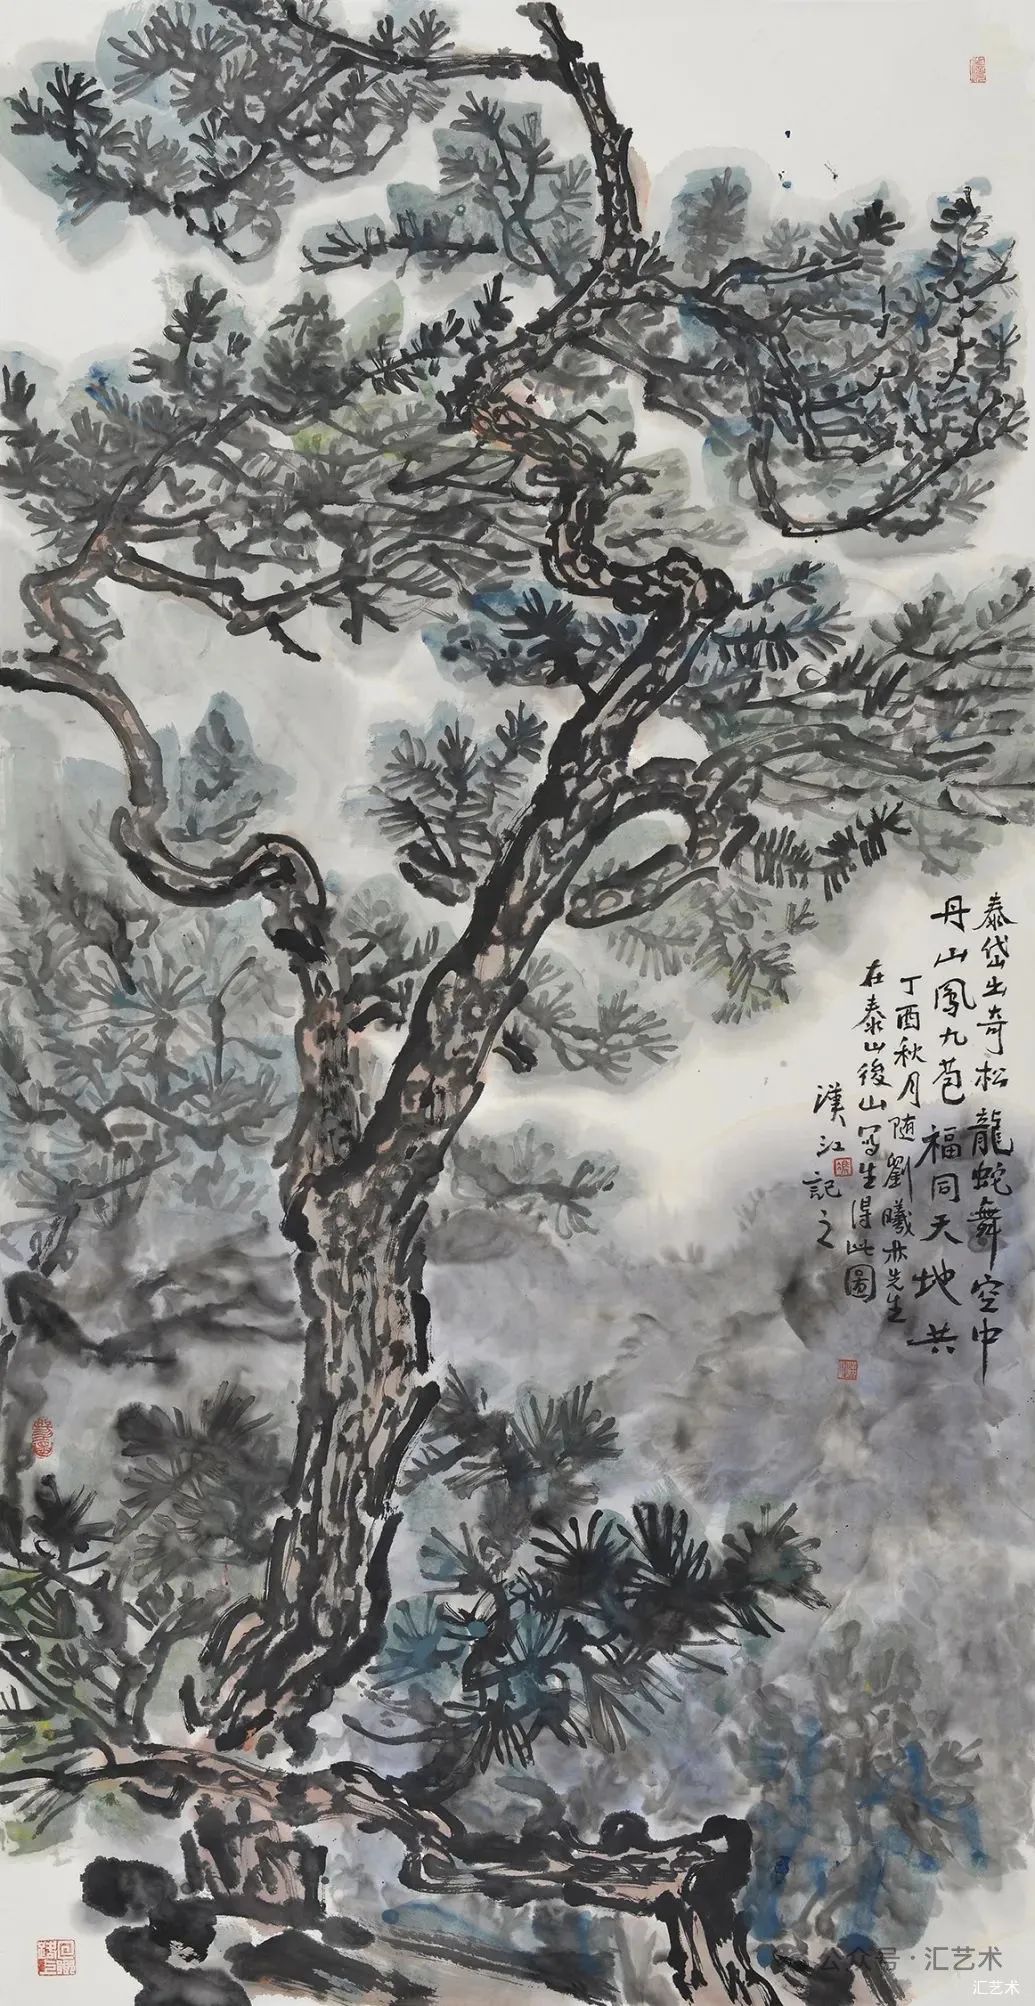 泰岱出奇松龍蛇舞空中
丹山鳳九苞福同天地共
丁酉秋月随劉曦林先生
在泰山後山写生得此圖
漢江記之
公众号·汇艺术
汇艺术